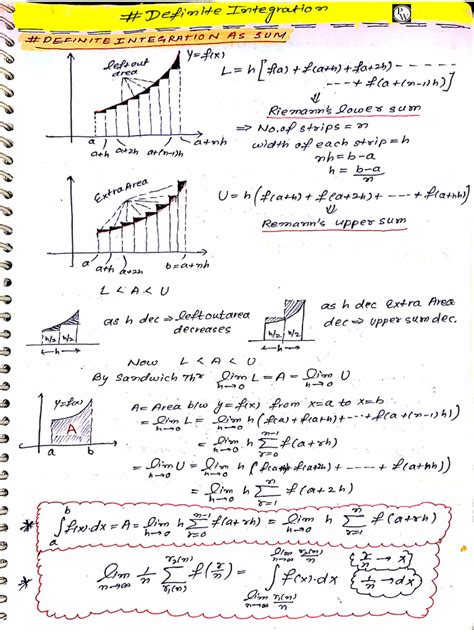 # Definite Integration
PW
# DEFINITE INTEGRATION AS SUM
left out
area
y=f(x)
L = h[f(a) + f(a+h) + f(a+2h) - - - - -
- - - - + f(a+(n-1)h)]
Riemann's lower sum
⇒ No. of strips = n
width of each strip = h
nh = b-a
h = b-a/n
a a+h a+2h a+(n-1)h a+nh
Extra Area
U = h(f(a+h) + f(a+2h) + - - - + f(a+nh))
Remann's upper sum
a a+h a+2h b=a+nh
L < A < U
as h dec ⇒ left out area
decreases
as h dec Extra Area
dec ⇒ upper sum dec.
h/2 h/2
h
h/2 h/2
h
Now L < A < U
By Sandwich Thr lim h→0 L = A = lim h→0 U
y=f(x)
A
a b
A = Area b/w y=f(x) from x=a to x=b
= lim h→0 L = lim h→0 h(f(a)+f(a+h)+ - - - + f(a+(n-1)h))
= lim h→0 h n-1 ∑ r=0 f(a+rh)
= lim h→0 U = lim h→0 h (f(a+h)+f(a+2h)+ - - - - + f(a+nh))
= lim h→0 h n ∑ r=1 f(a+2h)
* b ∫ a f(x)·dx = A = lim h→0 h n-1 ∑ r=0 f(a+rh) = lim h→0 h n ∑ r=1 f(a+rh)
* lim n→∞ 1/n r2(n) ∑ r1(n) f(r/n) = lim n→∞ r2(n)/n ∫ lim n→∞ r1(n)/n f(x)·dx {r/n → x} {1/n → dx}